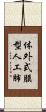 体外式膜型人工肺